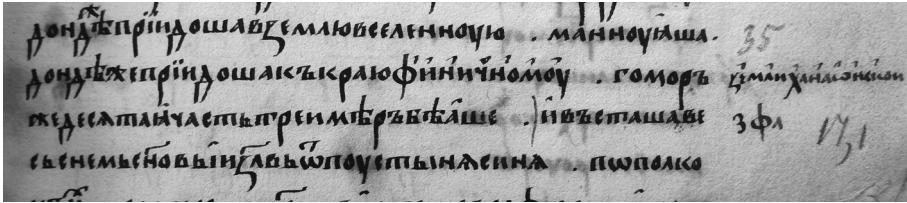 дондѣⷤ҇прїидошавземлювселенноую . манноуꙗша. 35
дондѣжепрїидошакъкраюфиничномоу . гоморъ
жедесѧтаꙗчастьтреимѣръбѣаше . ивъсташаве зфл 17,1
сьснемьсн҃овьиизл҃вьѿпоустынѧсинѧ . пѡполко